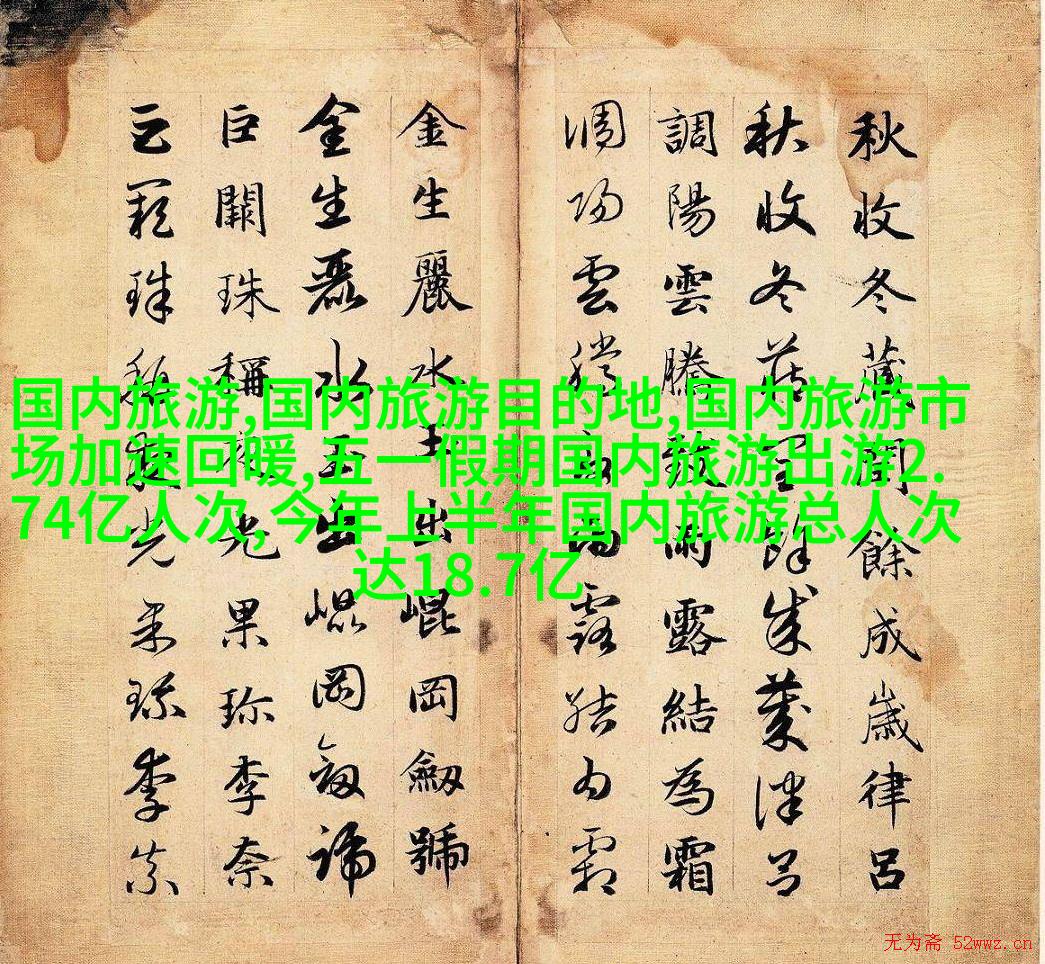 秋收冬藏閏餘成歲律呂
秋收冬藏閏餘成歲律呂
調陽雲騰致雨露結為霜
調陽雲騰致雨露結為霜
金生麗水玉出崐岡劒號
金生麗水玉出崐岡劒號
巨闕珠稱夜光果珍李奈
巨闕珠稱夜光果珍李奈
国内旅游,国内旅游目的地,国内旅游市
场加速回暖,五一假期国内旅游出游2.
74亿人次, 今年上半年国内旅游总人次
达18.7亿
无为斋 52wwz.cn